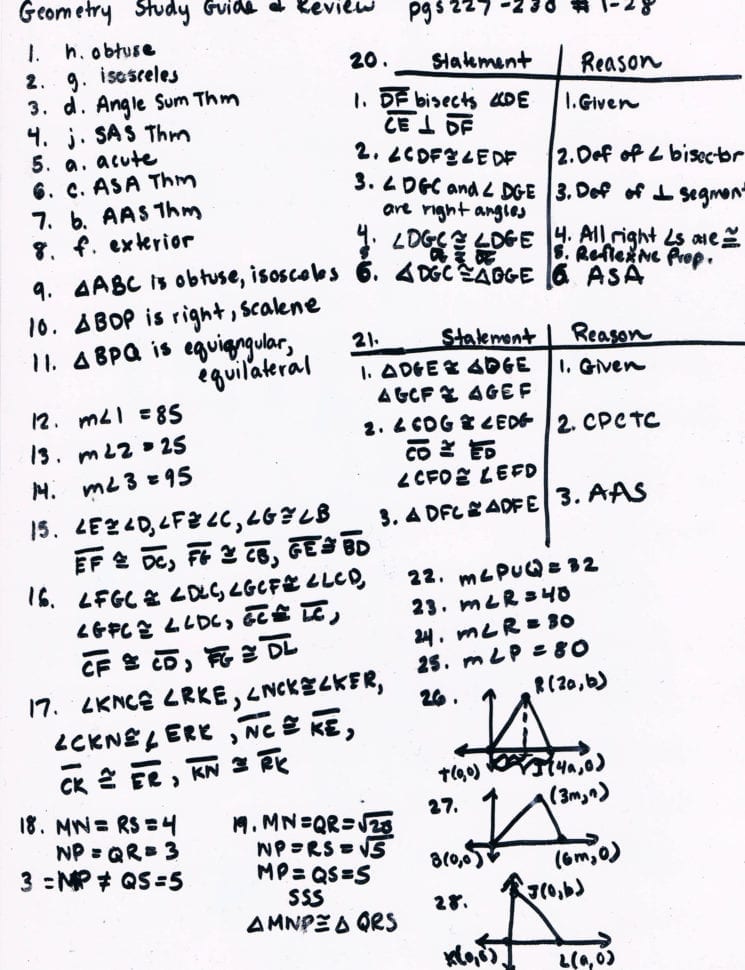 Geometry Study Guide & Review pgs 227-230 # 1-28
1. h. obtuse
2. g. isosceles
3. d. Angle Sum Thm
4. j. SAS Thm
5. a. acute
6. c. ASA Thm
7. b. AAS Thm
8. f. exterior
9. △ABC is obtuse, isosceles
10. △BDP is right, scalene
11. △BPQ is equiangular,
equilateral
12. m∠1 = 85
13. m∠2 = 25
14. m∠3 = 95
15. ∠E≅∠D, ∠F≅∠C, ∠G≅∠B
EF ≅ DC, FG ≅ CB, GE ≅ BD
16. ∠FGC ≅ ∠DLC, ∠GCF ≅ ∠LCD,
∠GFC ≅ ∠LDC, GC ≅ LC,
CF ≅ CD, FG ≅ DL
17. ∠KNC≅ ∠RKE, ∠NCK≅∠KER,
∠CKN≅∠ERK, NC ≅ KE,
CK ≅ ER, KN ≅ RK
18. MN = RS = 4
NP = QR = 3
3 = MP ≠ QS = 5
19. MN = QR = √20
NP = RS = √5
MP = QS = 5
SSS
△MNP≅△QRS
20. Statement Reason
1. DF bisects ∠CDE 1. Given
CE ⊥ DF
2. ∠CDF≅∠EDF 2. Def of ∠ bisector
3. ∠DGC and ∠DGE 3. Def of ⊥ segmen
are right angles
4. ∠DGC ≅ ∠DGE 4. All right ∠s are ≅
5. Reflexive Prop.
6. △DGC ≅ △DGE 6. ASA
21. Statement Reason
1. △DGE ≅ △DGE 1. Given
△GCF ≅ △GEF
2. ∠CDG ≅ ∠EDG 2. CPCTC
CD ≅ ED
∠CFD ≅ ∠EFD
3. △DFC ≅ △DFE 3. AAS
22. m∠PUQ = 32
23. m∠R = 40
24. m∠R = 80
25. m∠P = 80
26. R(2a,b)
T(0,0) (4a,0)
27. (3m,n)
B(0,0) (6m,0)
28. J(0,b)
K(0,0) L(a,0)